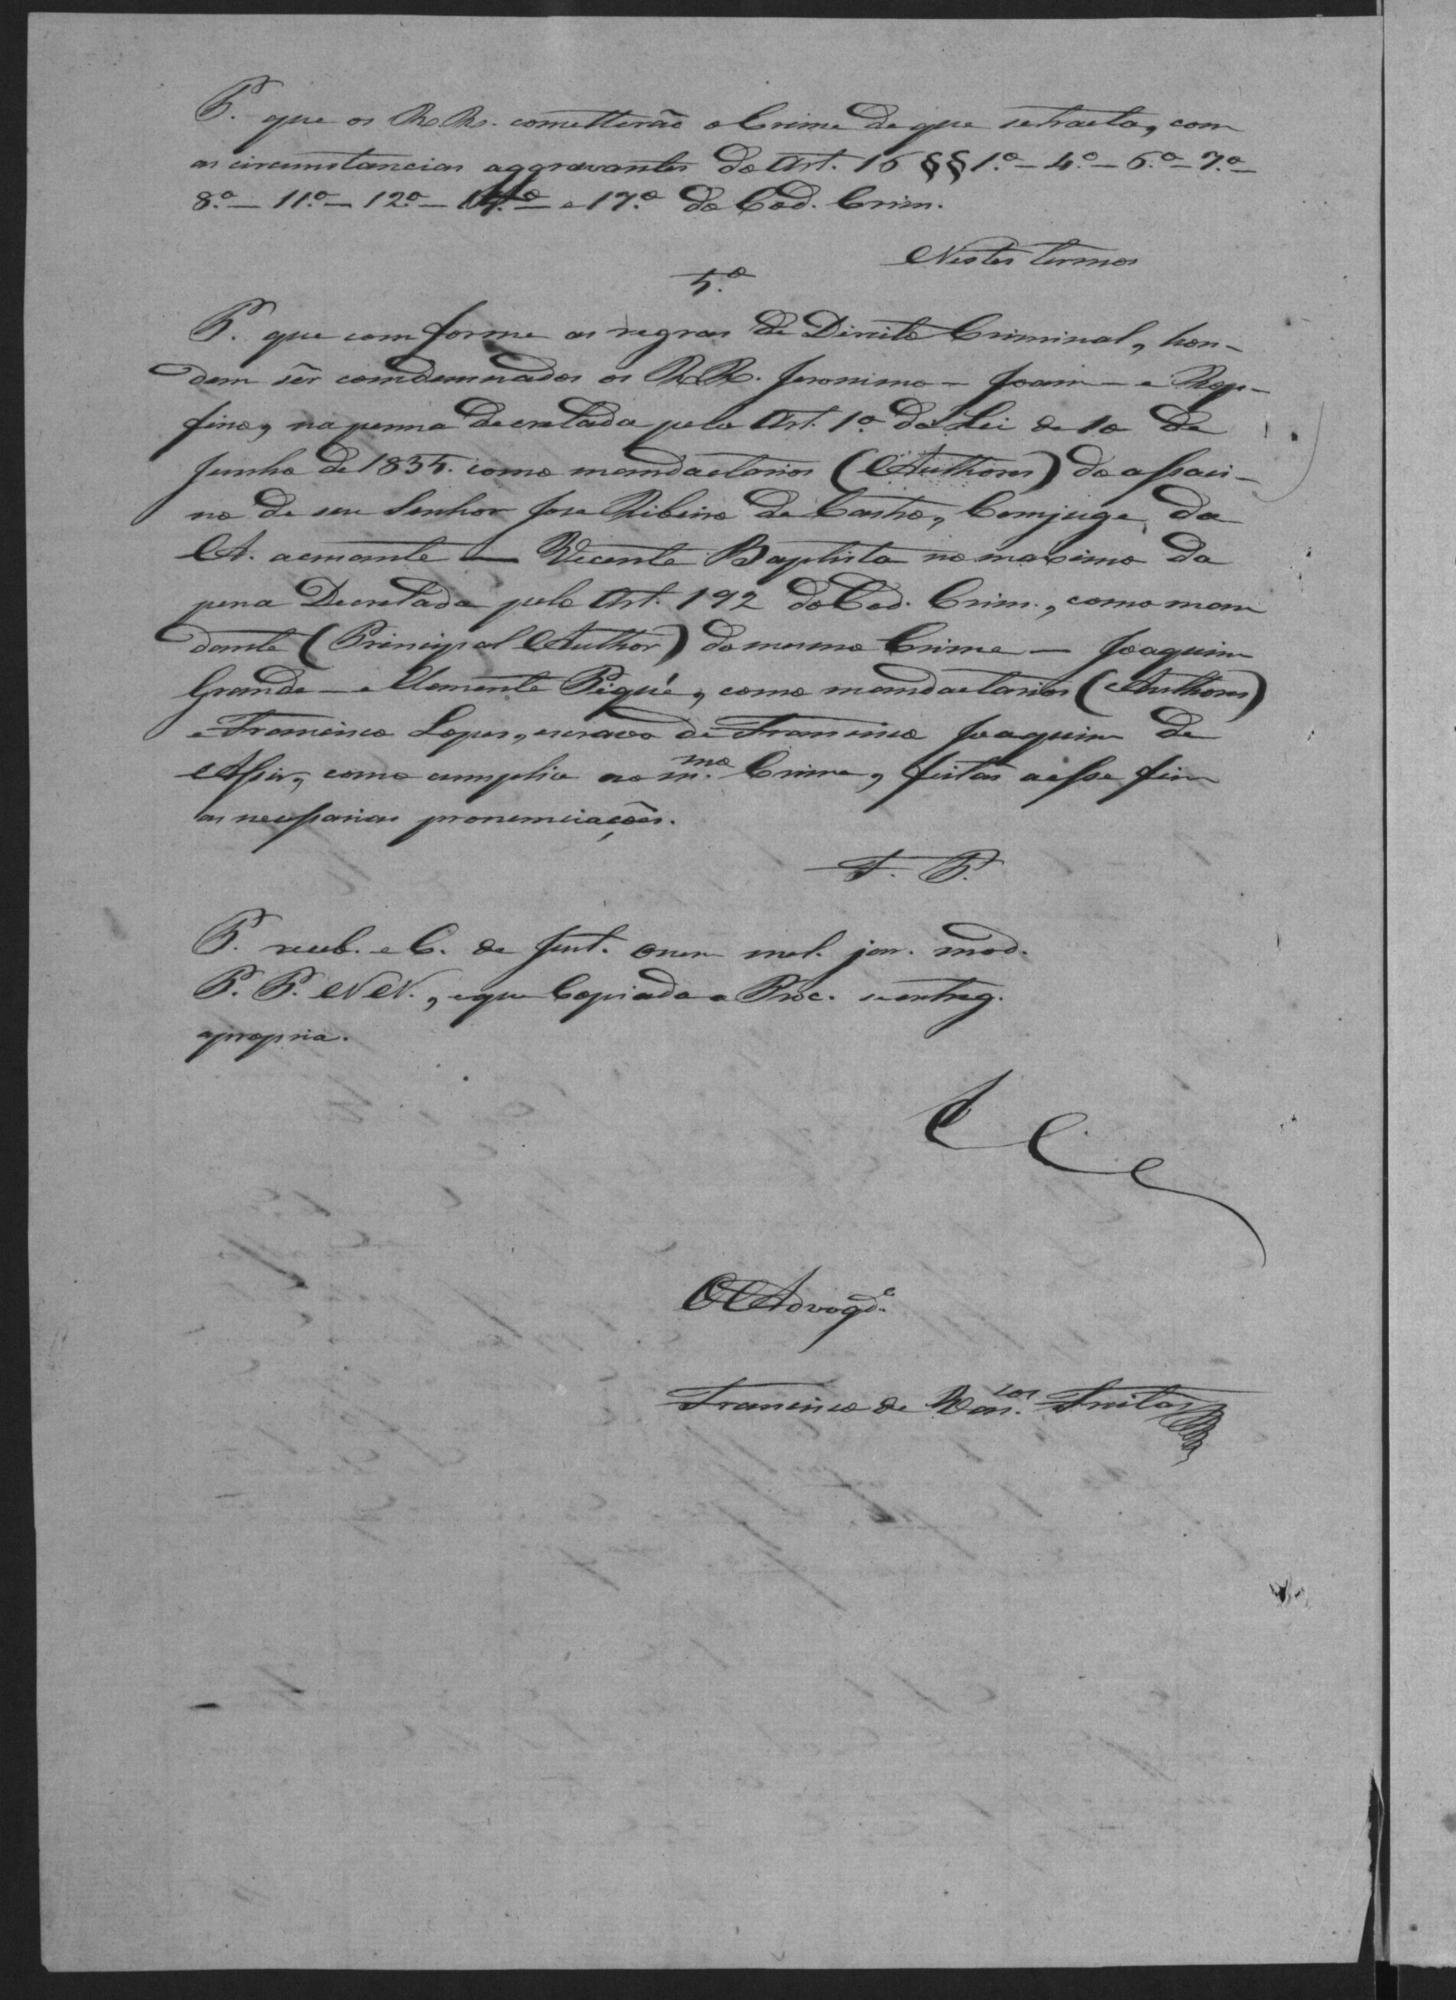 P. que os RR. cometterão o Crime de que se tracta, com
as circumstancias aggravantes do Art. 16 §§ 1.º - 4.º - 6.º - 7.º -
8.º - 11.º - 12.º - e 17.º do Cod. Crim.
Nestes termos
5.º
P. que comforme as regras de Direito Criminal, han-
dem sêr comdemnados os RR. Jeronimo - Joam - e Ruf-
fino, na penna decretada pelo Art. 1.º da Lei de 10 de
Junho de 1835. como mandactarios (Authores) do assaci-
no de seu Senhor Jose Ribeiro de Castro, Comjuge da
A. acmante - Vicente Baptista no maximo da
pena Decretada pelo Art. 192 do Cod. Crim., como man
dante (Principal Author) do mesmo Crime - Joaquim
Grande - e Clemente Piqué, como mandactarios (Authores)
e Francisco Lopes, escravo de Francisco Joaquim de
Assis, como cumplice no m.mo Crime, feitas a esse fim
as necessarias pronunciações.
F. P.
P. receb. e C. de Just. omn mel. jur. mod.
P. P. N N., e que Copiada a Proc. se entreg.
a propria.
O Advogd.e
Francisco de Vas.cos Freitas